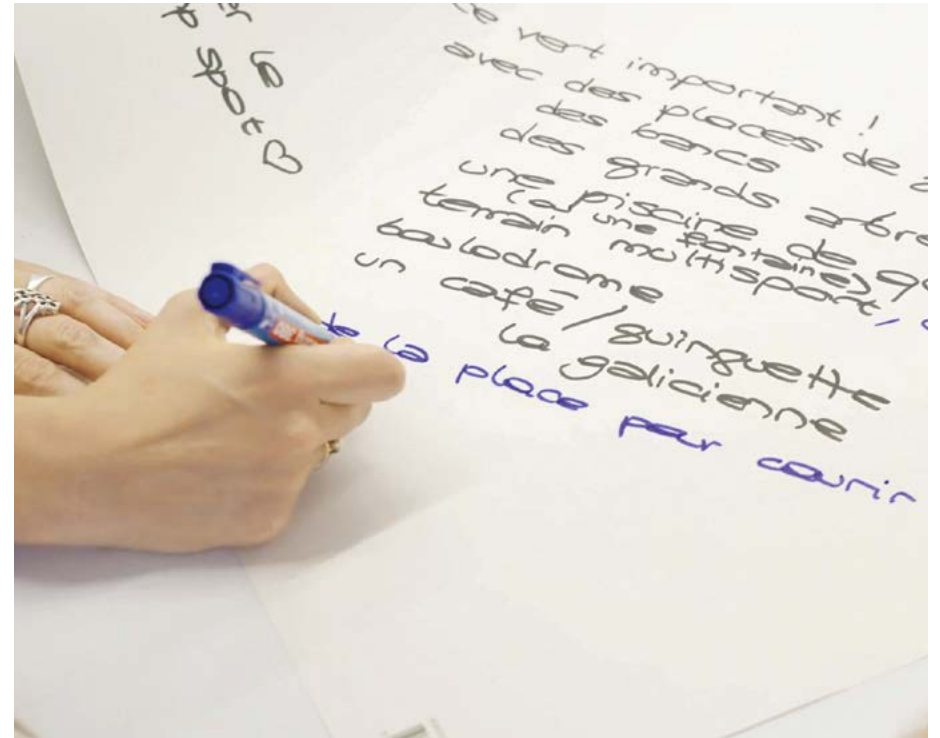 spot
vert important !
avec des places de
des bancs
des grands arbre
une piscine de
(ou une fontaine)
terrain multisport,
boulodrome
un café / guinguette
la galicienne
de la place pour courir